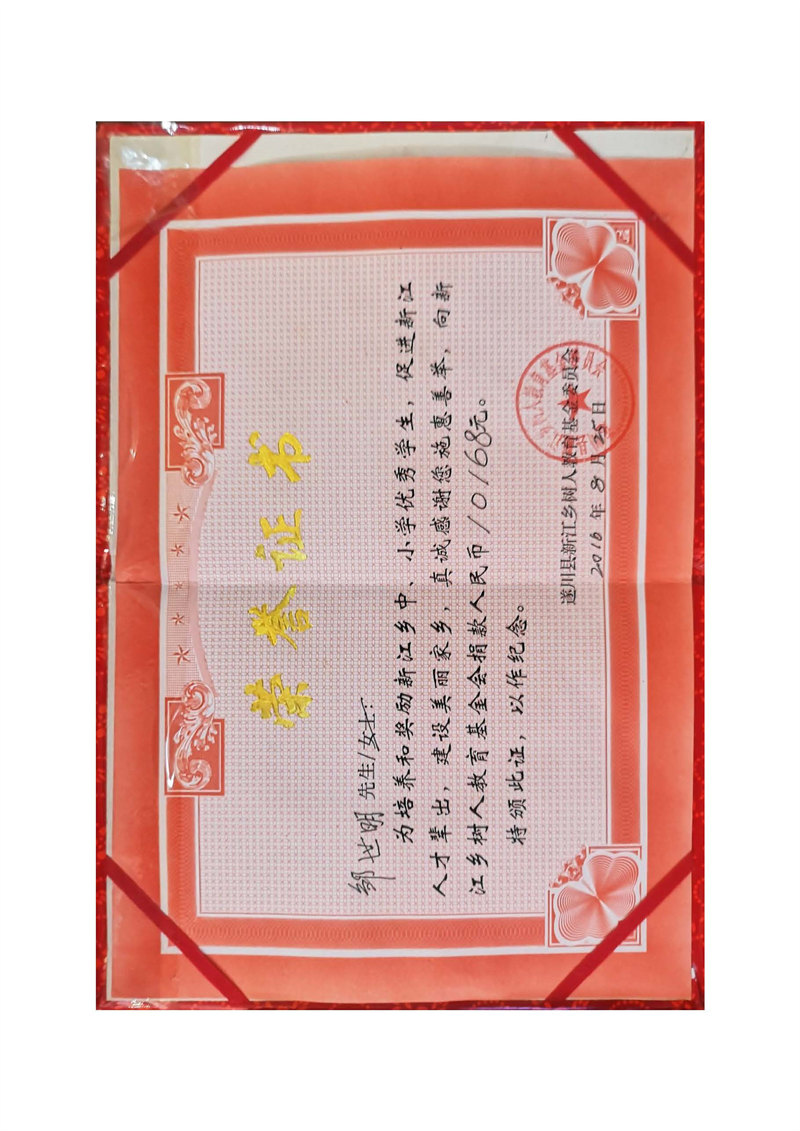 荣誉证书
邹世明 先生/女士:
为培养和奖励新江乡中、小学优秀学生，促进新江
人才辈出，建设美丽家乡，真诚感谢您施惠善举，向新
江乡树人教育基金会捐款人民币10168元。
特颁此证，以作纪念。
遂川县新江乡树人教育基金委员会
2016年8月25日